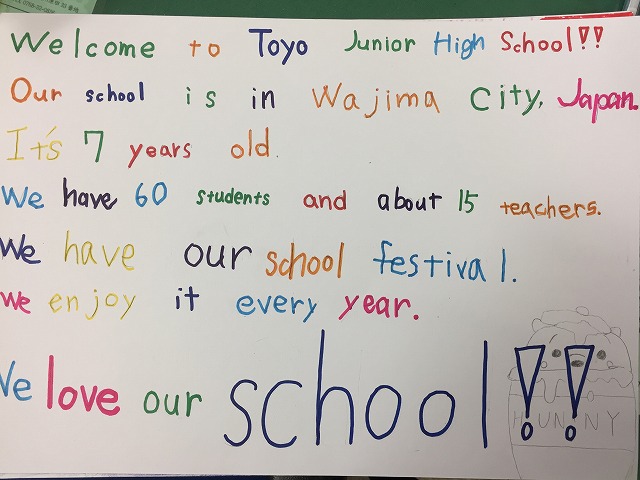 Welcome to Toyo Junior High School!!
Our school is in Wajima City, Japan.
It's 7 years old.
We have 60 students and about 15 teachers.
We have our school festival.
We enjoy it every year.
We love our school!!
HUNNY